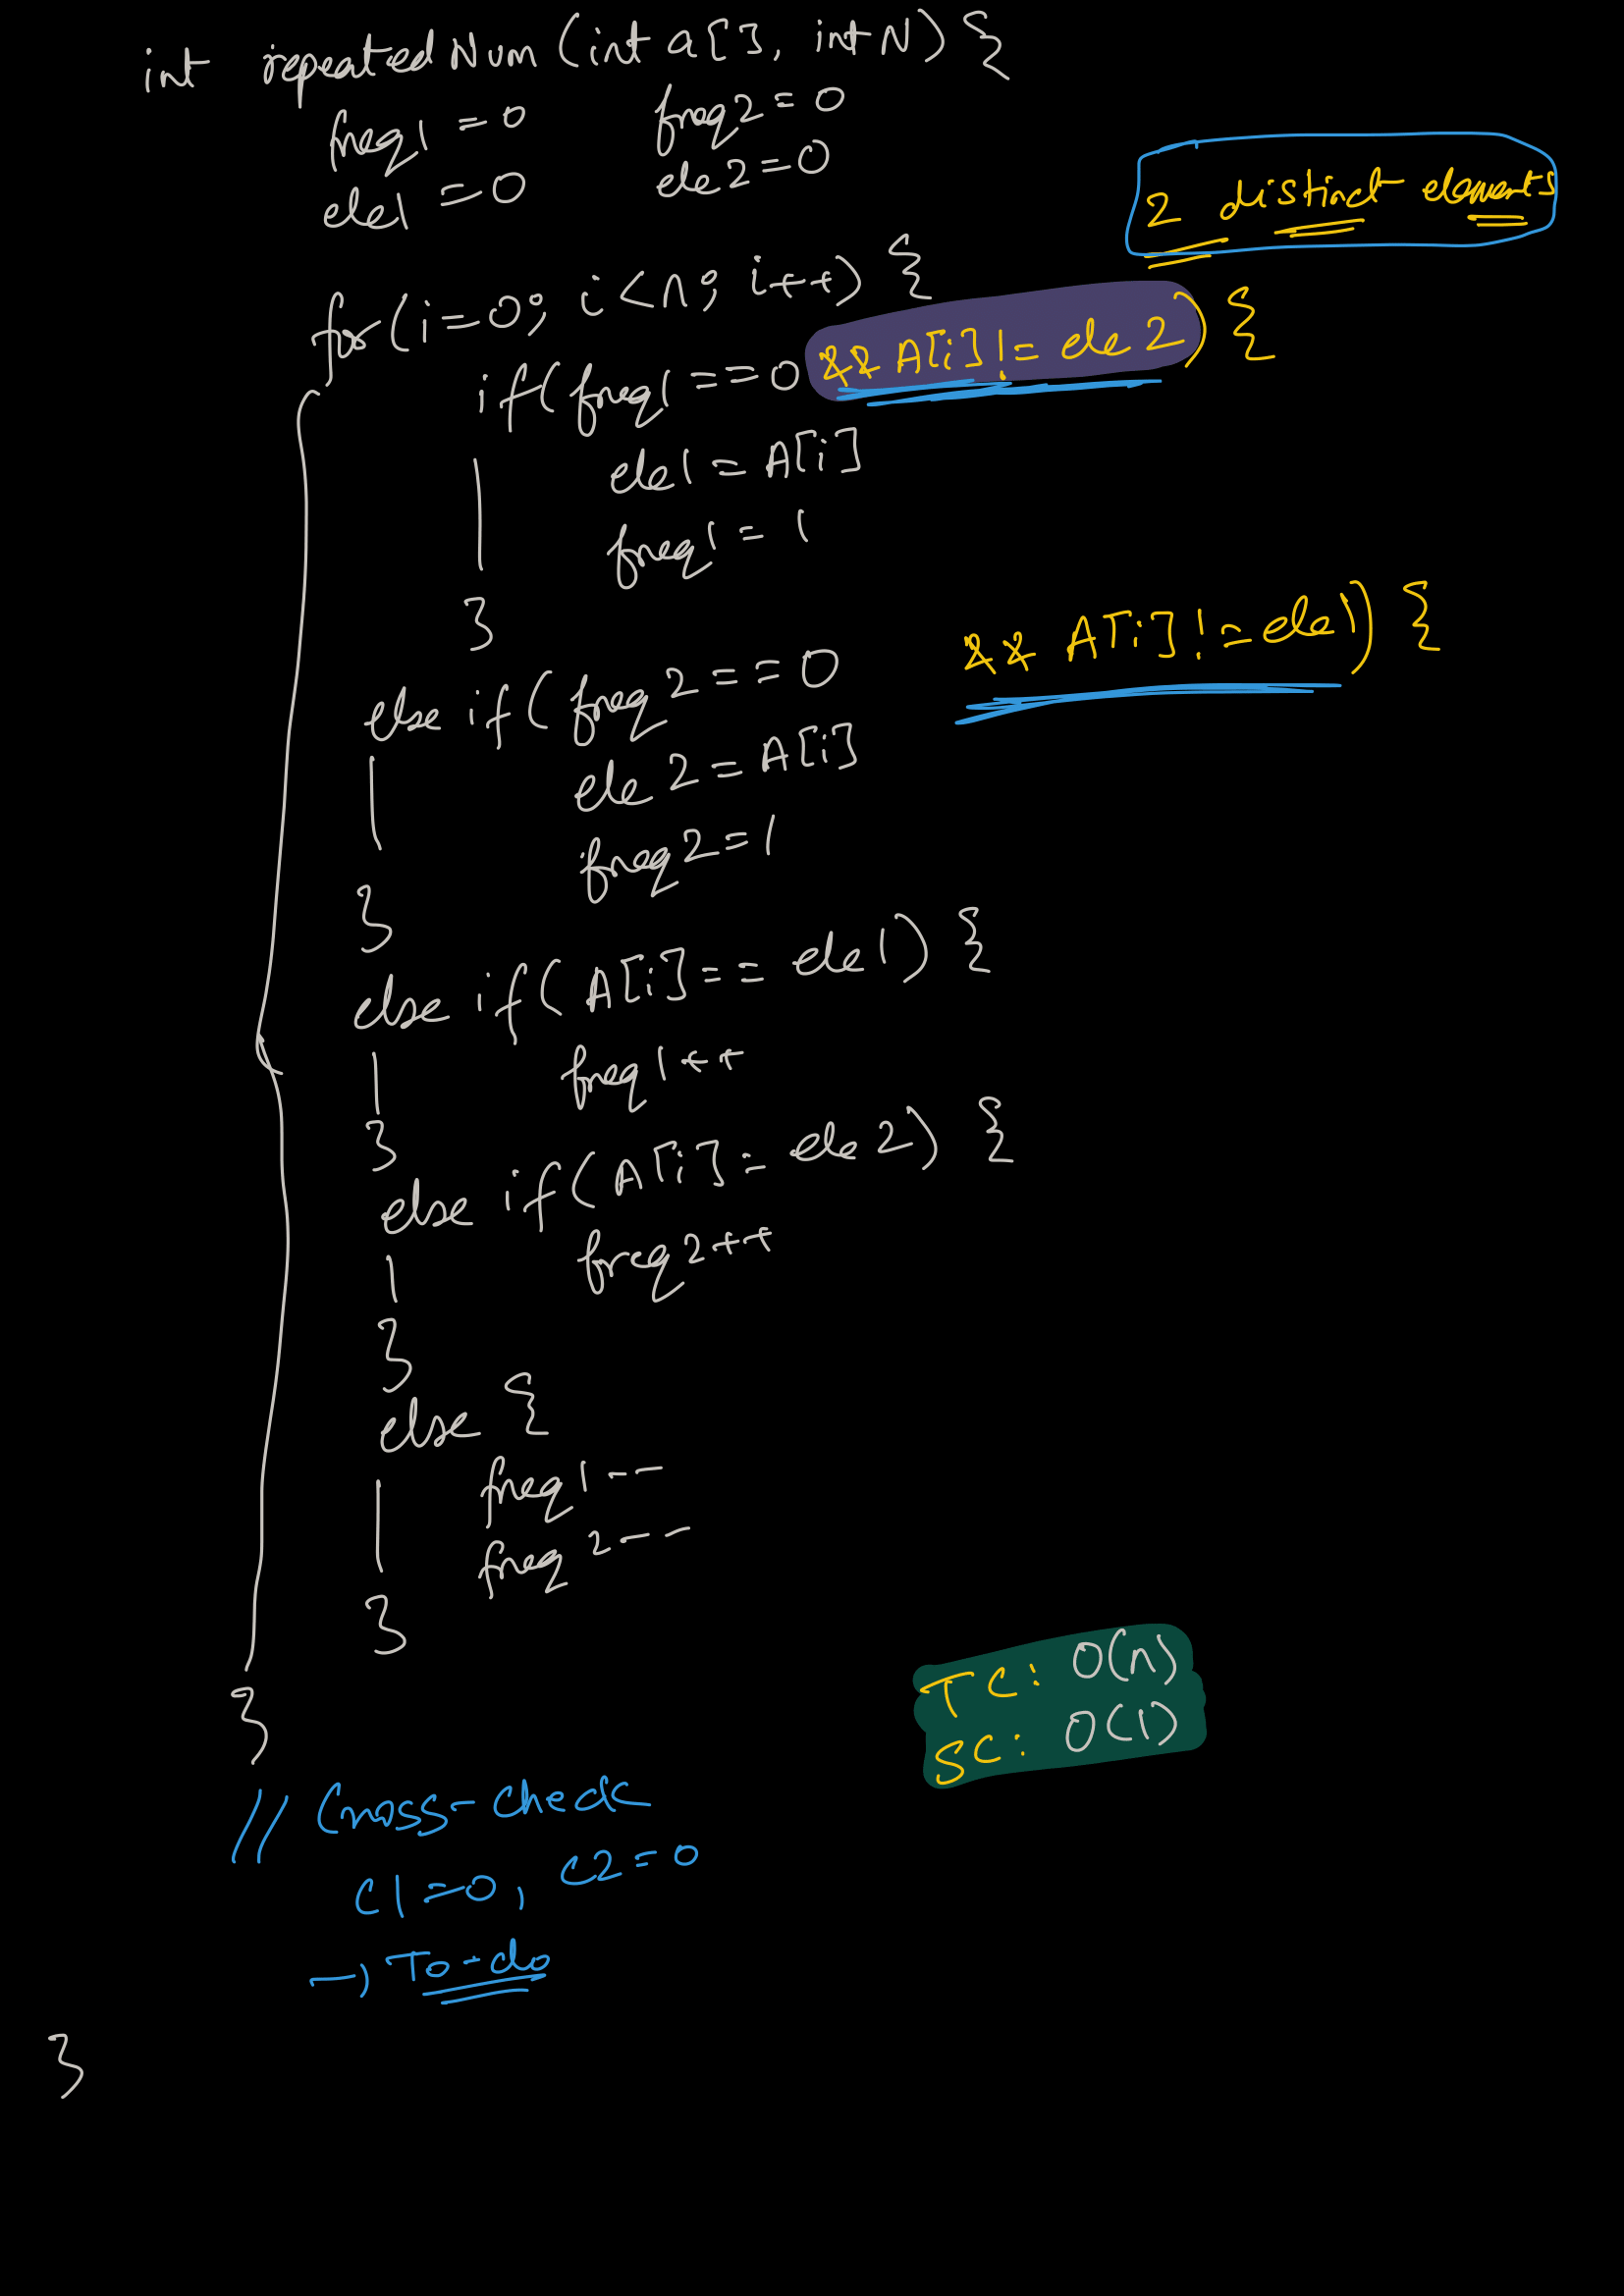 int repeatedNum (int a[], int N) {
freq1 = 0 freq2 = 0
ele1 = 0 ele2 = 0
2 distinct elements
for(i=0; i<n; i++) {
if(freq1 == 0 && A[i] != ele2) {
ele1 = A[i]
freq1 = 1
}
else if( freq2 == 0 && A[i] != ele1) {
ele2 = A[i]
freq2 = 1
}
else if( A[i] == ele1) {
freq1++
}
else if(A[i] = ele2) {
freq2++
}
else {
freq1--
freq2--
}
}
TC: O(n)
SC: O(1)
// Cross-check
c1=0, c2=0
→ To-do
}